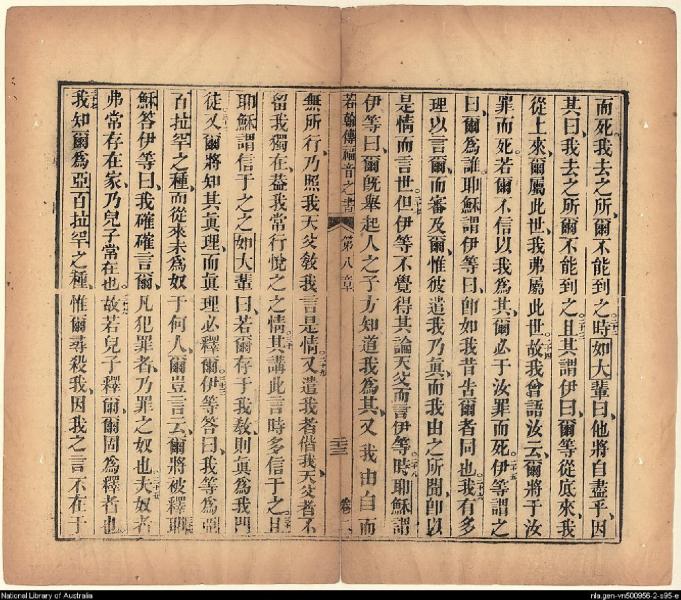 而死我去之所爾不能到之時如大輩曰他將自盡乎因
其曰我去之所爾不能到之且其謂伊曰爾等從底來我
從上來爾屬此世我弗屬此世故我曾語汝云爾將于汝
罪而死若爾不信以我為其爾必于汝罪而死伊等謂之
曰爾為誰耶穌謂伊等曰卽如我昔告爾者同也我有多
理以言爾而審及爾惟彼遣我乃眞而我由之所聞卽以
是情而言世但伊等不覺得其論天父而言伊等時耶穌謂
伊等曰爾旣舉起人之子方知道我為其又我由自而
若翰傳福音之書 第八章 卷二
無所行乃照我天父敎我言是情又遣我者偕我天父者不
留我獨在蓋我常行悅之之情其講此言時多信于之且
耶穌謂信于之之如大輩曰若爾存于我敎則眞為我門
徒又爾將知其眞理而眞理必釋爾伊等答曰我等為亞
百拉罕之種而從來未為奴于何人爾豈言云爾將被釋耶
穌答伊等曰我確確言爾凡犯罪者乃罪之奴也夫奴者
弗常存在家乃兒子常在也故若兒子釋爾爾固為釋者也
我知爾為亞百拉罕之種惟爾尋殺我因我之言不在于
National Library of Australia
nla.gen-vn500956-2-s95-e